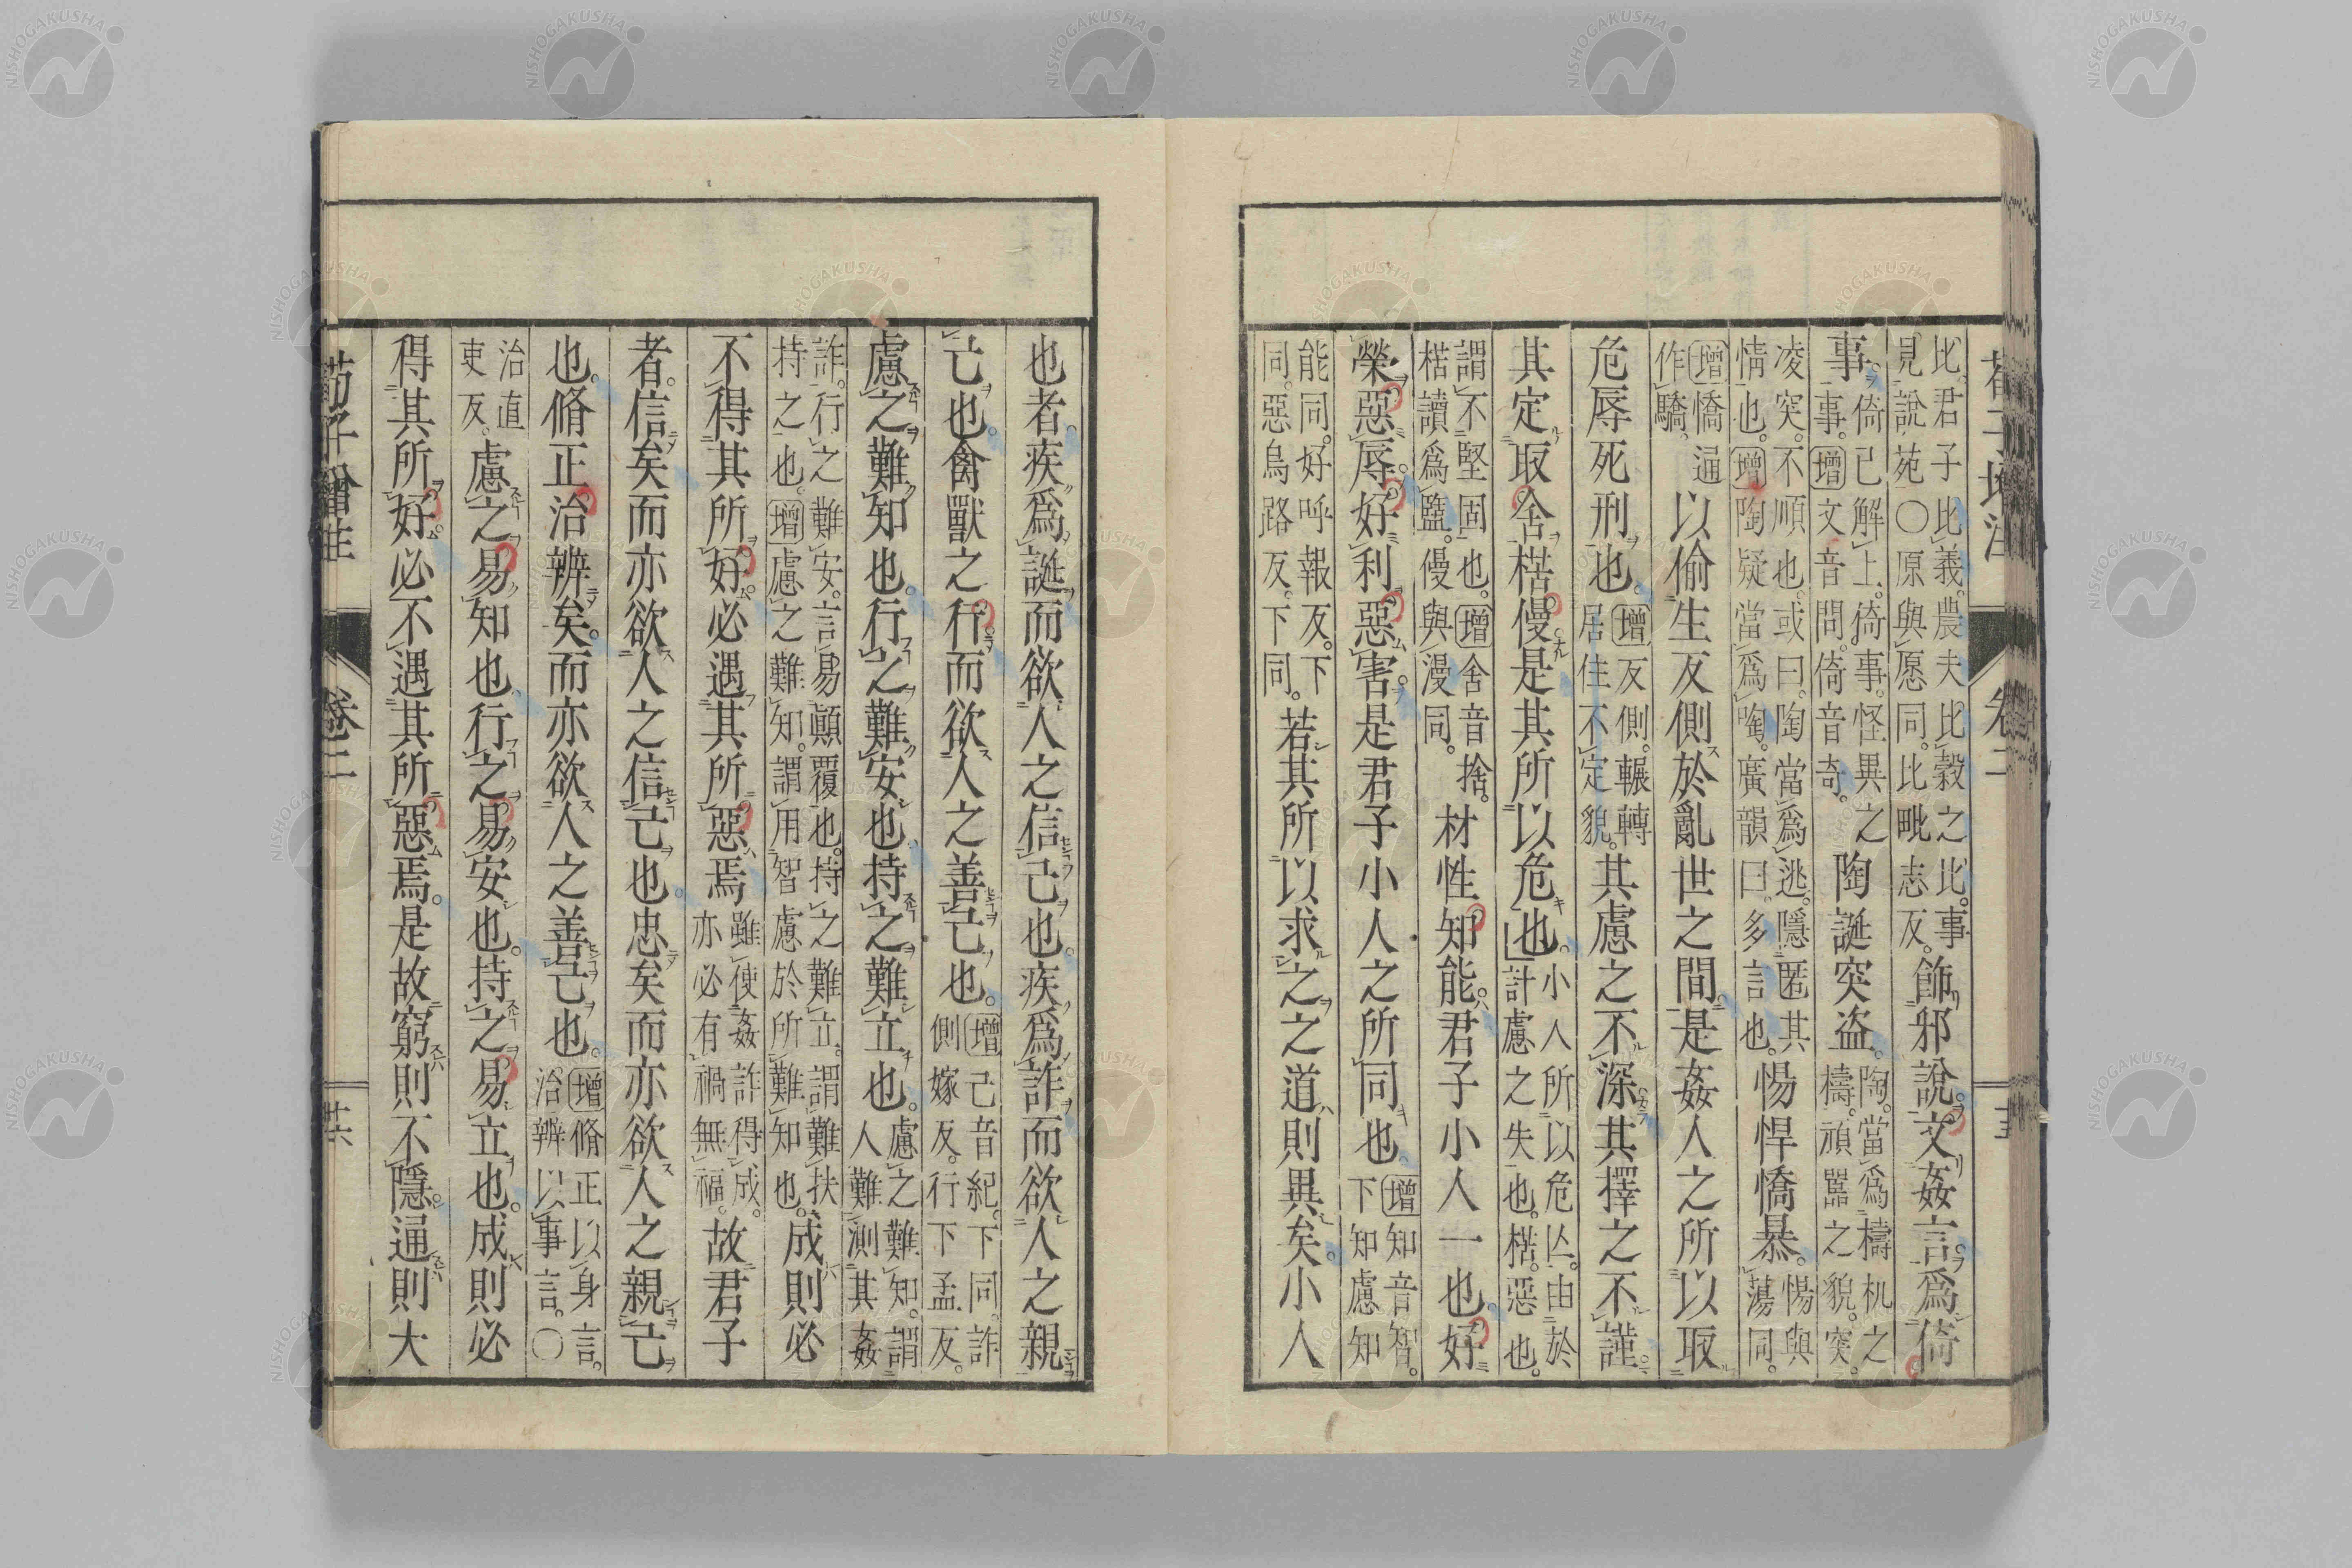 荀子增注 卷二
比君子比義農夫比穀之比事見說苑○原與愿同比毗志反。飾邪說文姦言爲倚
事。倚已解上倚事。怪異之事。增文音問。倚音奇。陶誕突盗。陶當爲檮杌之檮。頑嚚之貌。突
凌突。不順也。或曰。陶當爲逃。隱匿其情也。增陶疑當爲啕。廣韻曰。多言也。惕悍憍暴。惕與蕩同。
增憍通作驕。以偷生反側於亂世之間。是姦人之所以取
危辱死刑也。增反側。輾轉居住不定貌。其慮之不深其擇之不謹。
其定取舍楛僈。是其所以危也。小人所以危亾。由於計慮之失也。楛。惡也。
謂不堅固也。增舍音捨。楛讀爲盬。僈與漫同。材性知能。君子小人一也。好
榮惡辱。好利惡害。是君子小人之所同也。增知音智。下知慮知
能同。好呼報反。下同。惡烏路反。下同。若其所以求之之道則異矣。小人
也者。疾爲誕而欲人之信己也。疾爲詐而欲人之親
己也。禽獸之行而欲人之善己也。增己音紀。下同。詐側嫁反。行下孟反。
慮之難知也。行之難安也。持之難立也。慮之難知。謂人難測其姦
詐。行之難安。言易顚覆也。持之難立。謂難扶持之也。增慮之難知。謂用智慮於所難知也。成則必
不得其所好。必遇其所惡焉。雖使姦詐得成。亦必有禍無福。故君子
者。信矣。而亦欲人之信己也。忠矣。而亦欲人之親己
也。脩正治辨矣。而亦欲人之善己也。增脩正以身言。治辨以事言。○
治直吏反。慮之易知也。行之易安也。持之易立也。成則必
得其所好。必不遇其所惡焉。是故窮則不隱。通則大
荀子增注 卷二 廿六